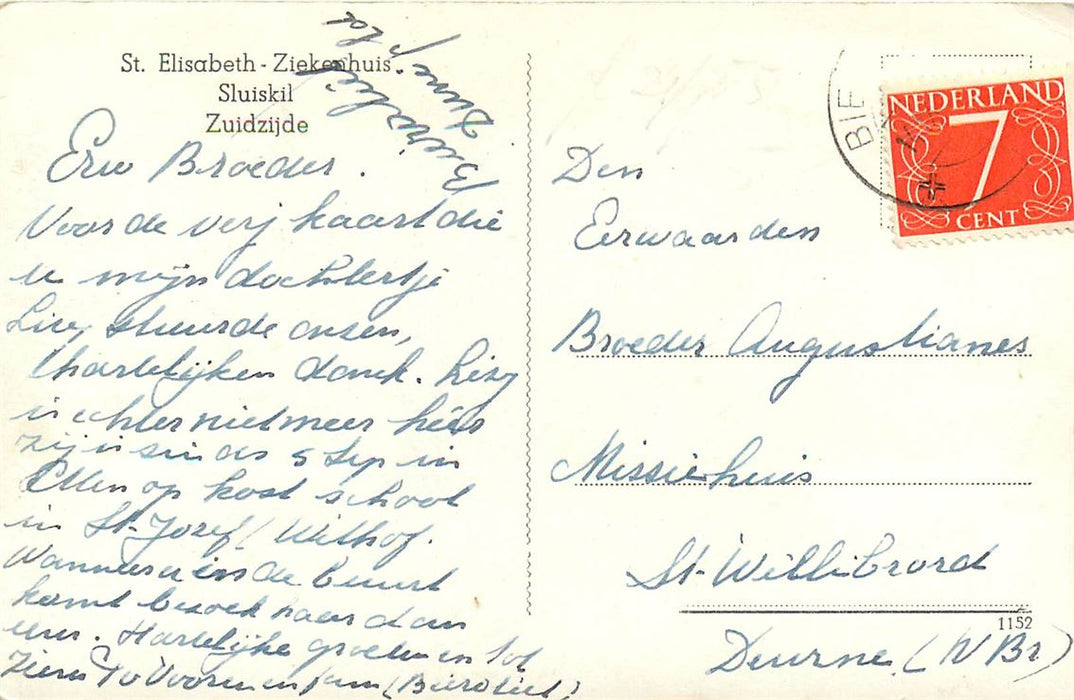 St. Elisabeth - Ziekenhuis.
Sluiskil
Zuidzijde
Biervliet
Erw Broeder.
Voor de verj kaart die
u mijn dochtertje
Lisy stuurde onsen,
hartelijken danck. Lisy
is echter niet meer hier
zij is sinds 5 Sep in
Etten op kost school
in St. Jozef/ Withof.
Wanneer u in de buurt
komt bezoek haar dan
eens. Hartelijke groeten en tot
ziens
(Biervliet)
Den
Eerwaarden
Broeder Augustianes
Missiehuis
St. Willibrord
Deurne (N Br)
1152
BIE
NEDERLAND
7
CENT